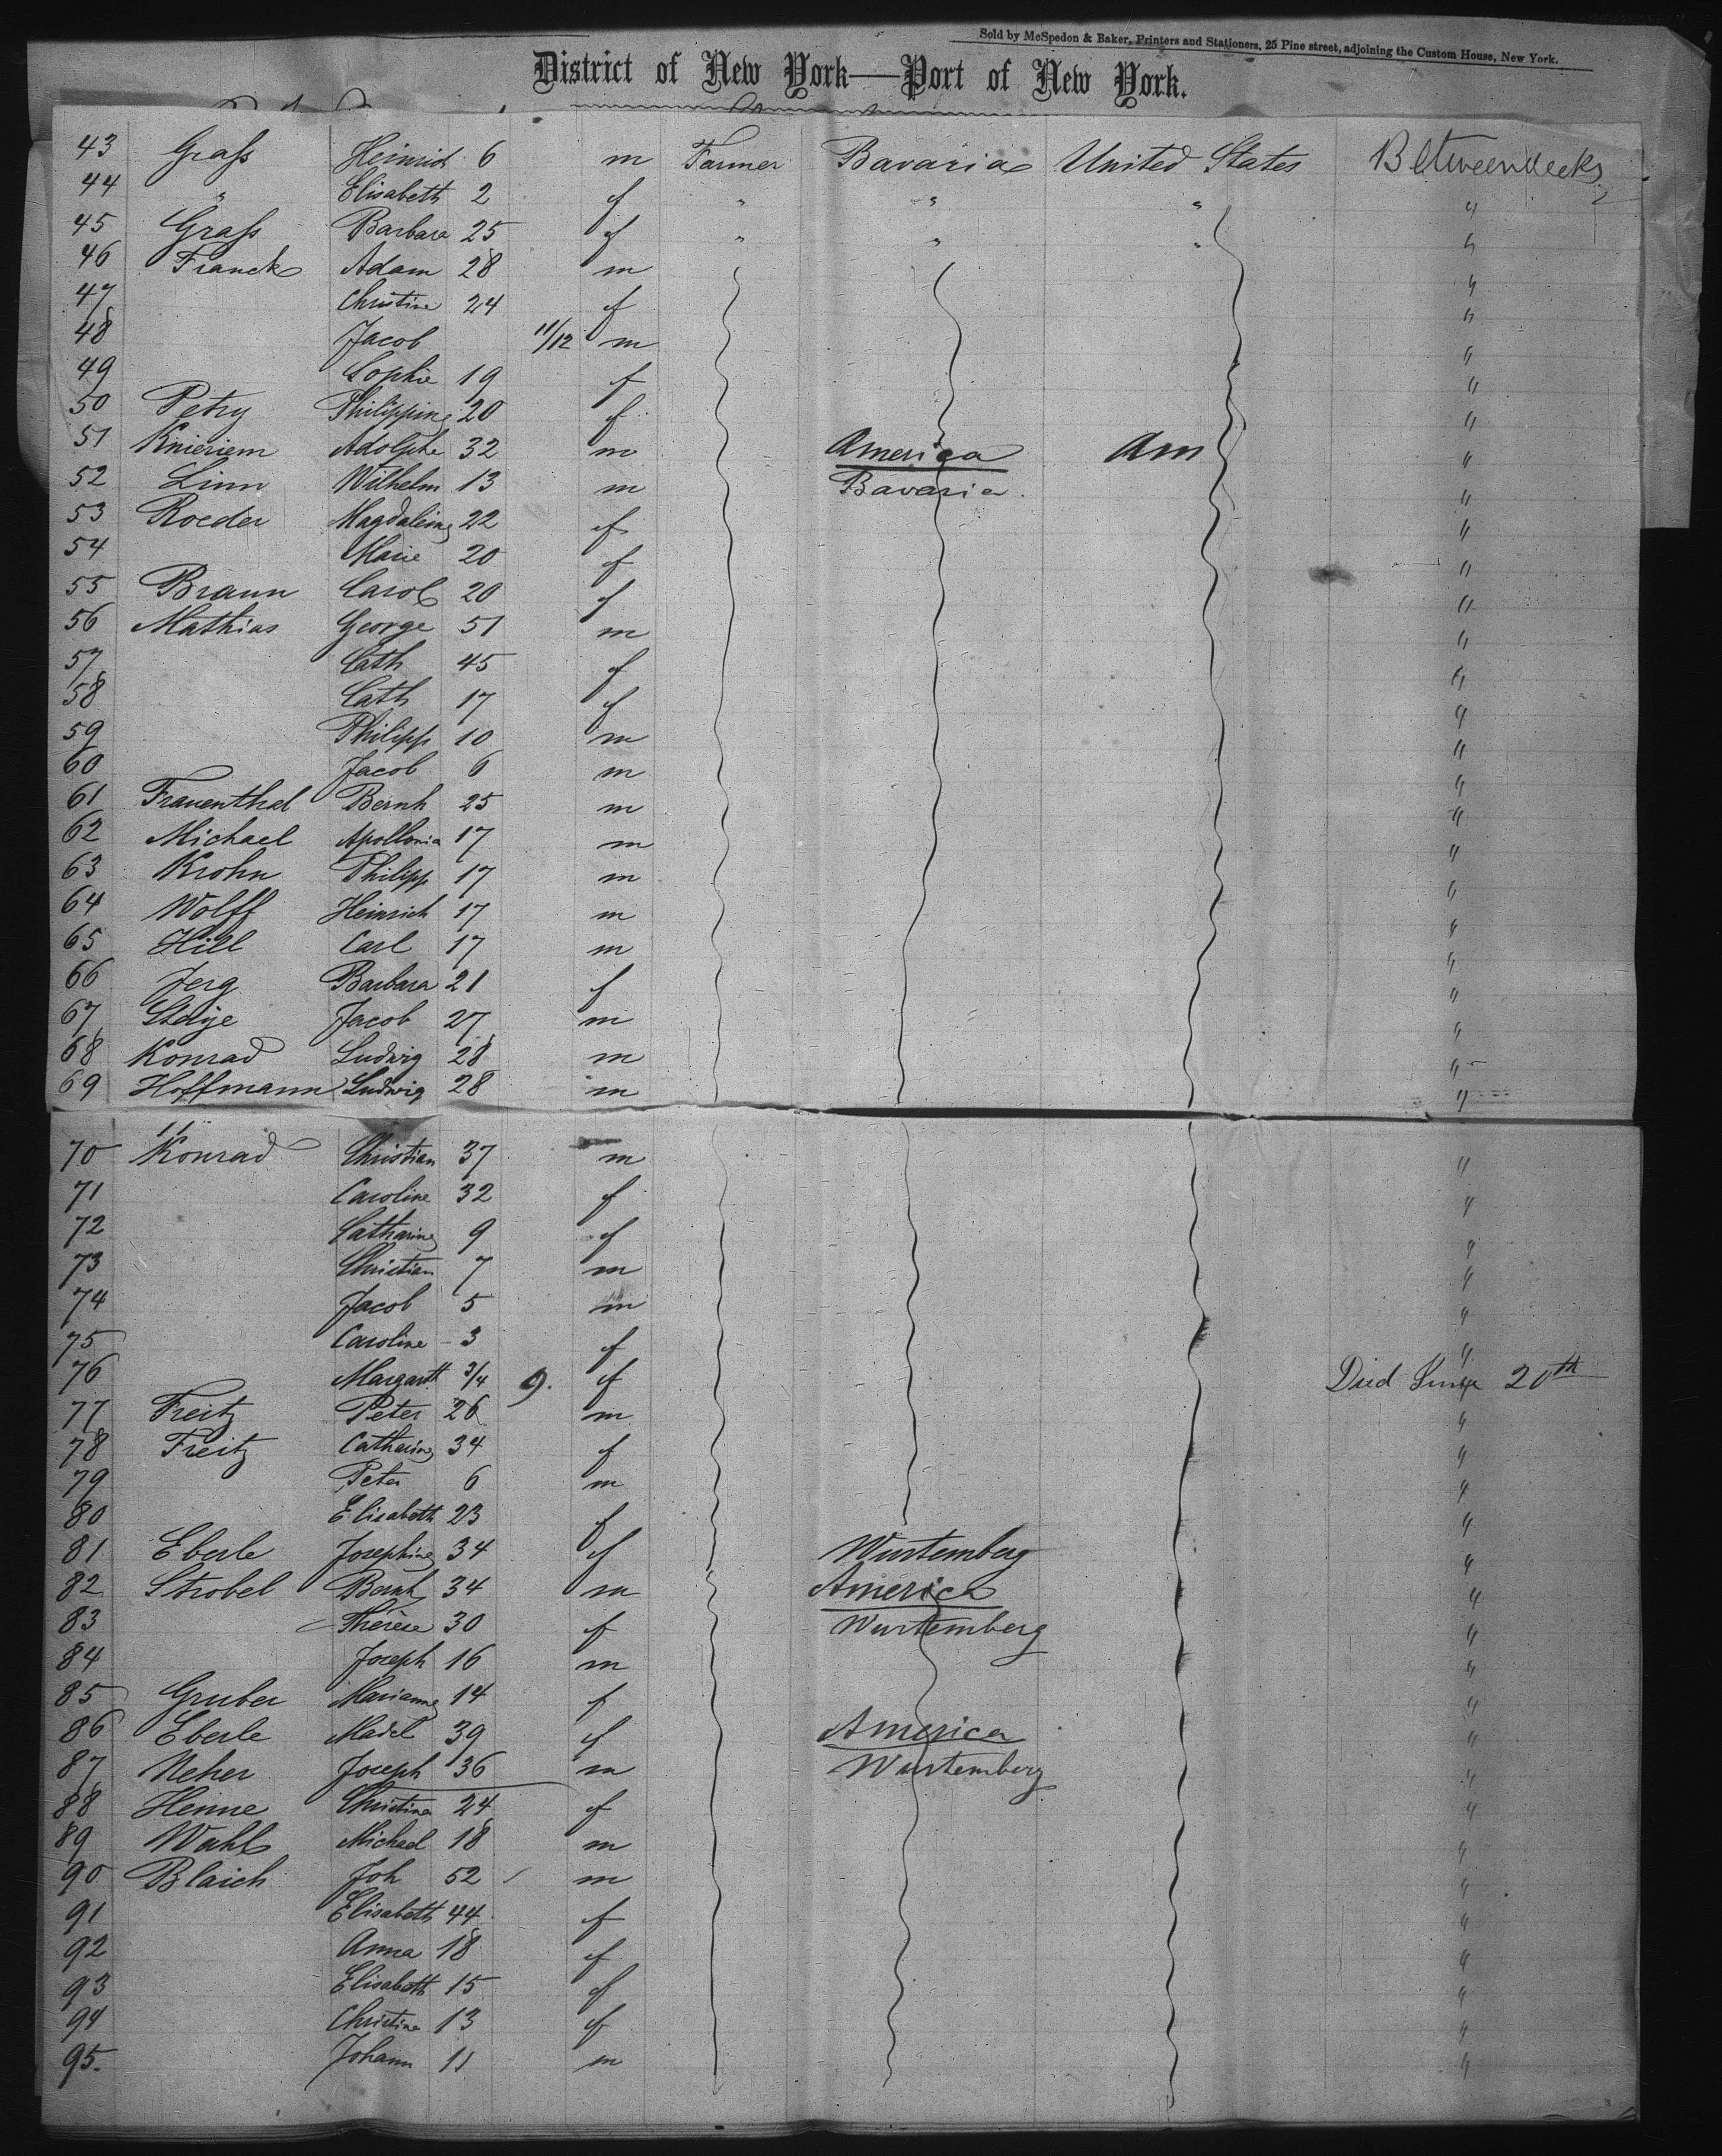 Sold by McSpedon & Baker, Printers and Stationers, 25 Pine street, adjoining the Custom House, New York.
District of New York—Port of New York.
43 Grafs Heinrich 6 m Farmer Bavaria United States Betweendecks
44 " Elisabeth 2 f " " " "
45 Grafs Barbara 25 f " " " "
46 Franck Adam 28 m "
47 Christine 24 f "
48 Jacob 11/12 m "
49 Sophie 19 f "
50 Petry Philippine 20 f "
51 Knieriem Adolphe 32 m America Am "
52 Linn Wilhelm 13 m Bavaria "
53 Roeder Magdalena 22 f "
54 Marie 20 f "
55 Braun Carol 20 f "
56 Mathias George 51 m "
57 Cath 45 f "
58 Cath 17 f "
59 Philipp 10 m "
60 Jacob 6 m "
61 Frauenthal Bernh 25 m "
62 Michael Apollonia 17 m "
63 Krohn Philipp 17 m "
64 Wolff Heinrich 17 m "
65 Hill Carl 17 m "
66 Jerg Barbara 21 f "
67 Jacob 27 m "
68 Konrad Ludwig 28 m "
69 Hoffmann Ludwig 28 m "
70 Konrad Christian 37 m "
71 Caroline 32 f "
72 Catharine 9 f "
73 Christian 7 m "
74 Jacob 5 m "
75 Caroline 3 f "
76 Margarett 3/4 9. f Died 20th
77 Freitz Peter 26 m "
78 Freitz Catharine 34 f "
79 Peter 6 m "
80 Elisabeth 23 f "
81 Eberle Josephine 34 f Wurtemberg "
82 Strobel Bernh 34 m America "
83 Thérèse 30 f Wurtemberg "
84 Joseph 16 m "
85 Gruber Marianne 14 f "
86 Eberle Madel 39 f America "
87 Neher Joseph 36 m Wurtemberg "
88 Henne Christina 24 f "
89 Wahl Michael 18 m "
90 Blaich Joh 52 m "
91 Elisabeth 44 f "
92 Anna 18 f "
93 Elisabeth 15 f "
94 Christina 13 f "
95. Johann 11 m "